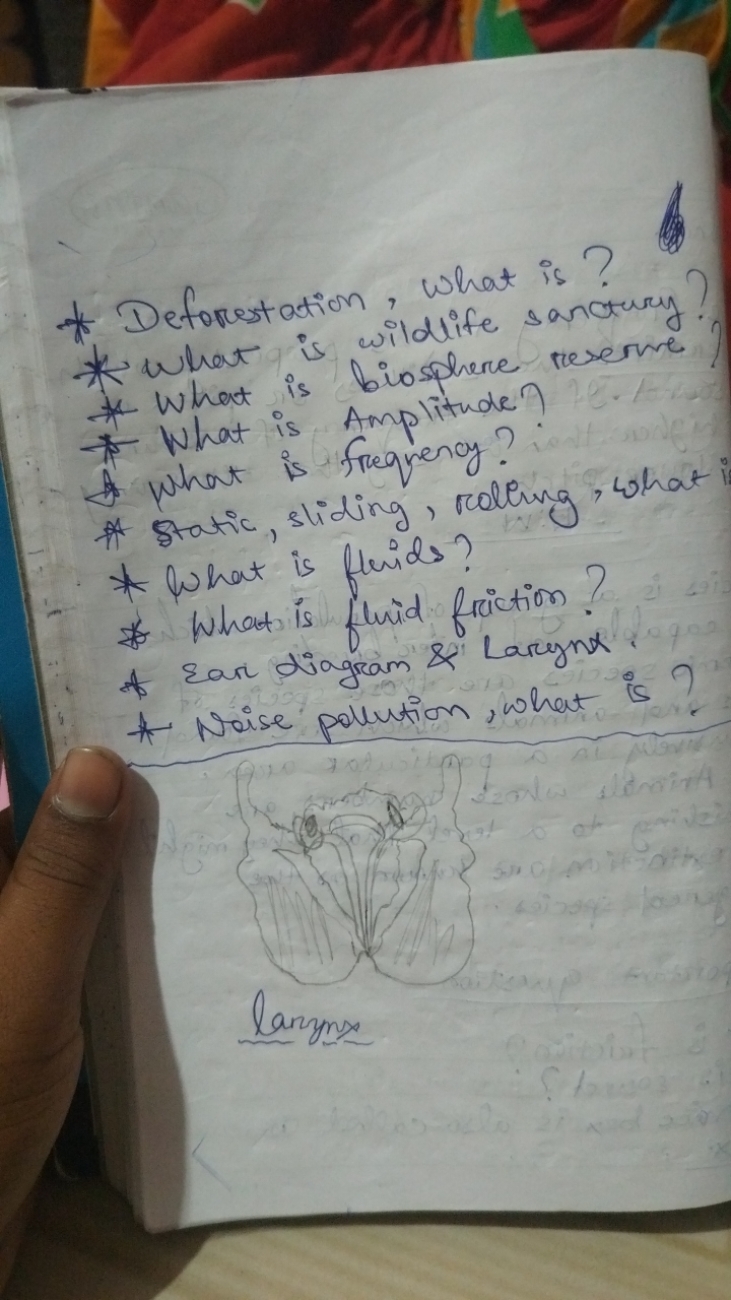 * Deforestation, what is?
* What is wildlife sanctury?
* What is biosphere reserve?
* What is Amplitude?
* What is frequency?
* Static, sliding, rolling, what is
* What is fluids?
* What is fluid friction?
* Ear diagram & Larynx.
* Noise pollution, what is?
larynx